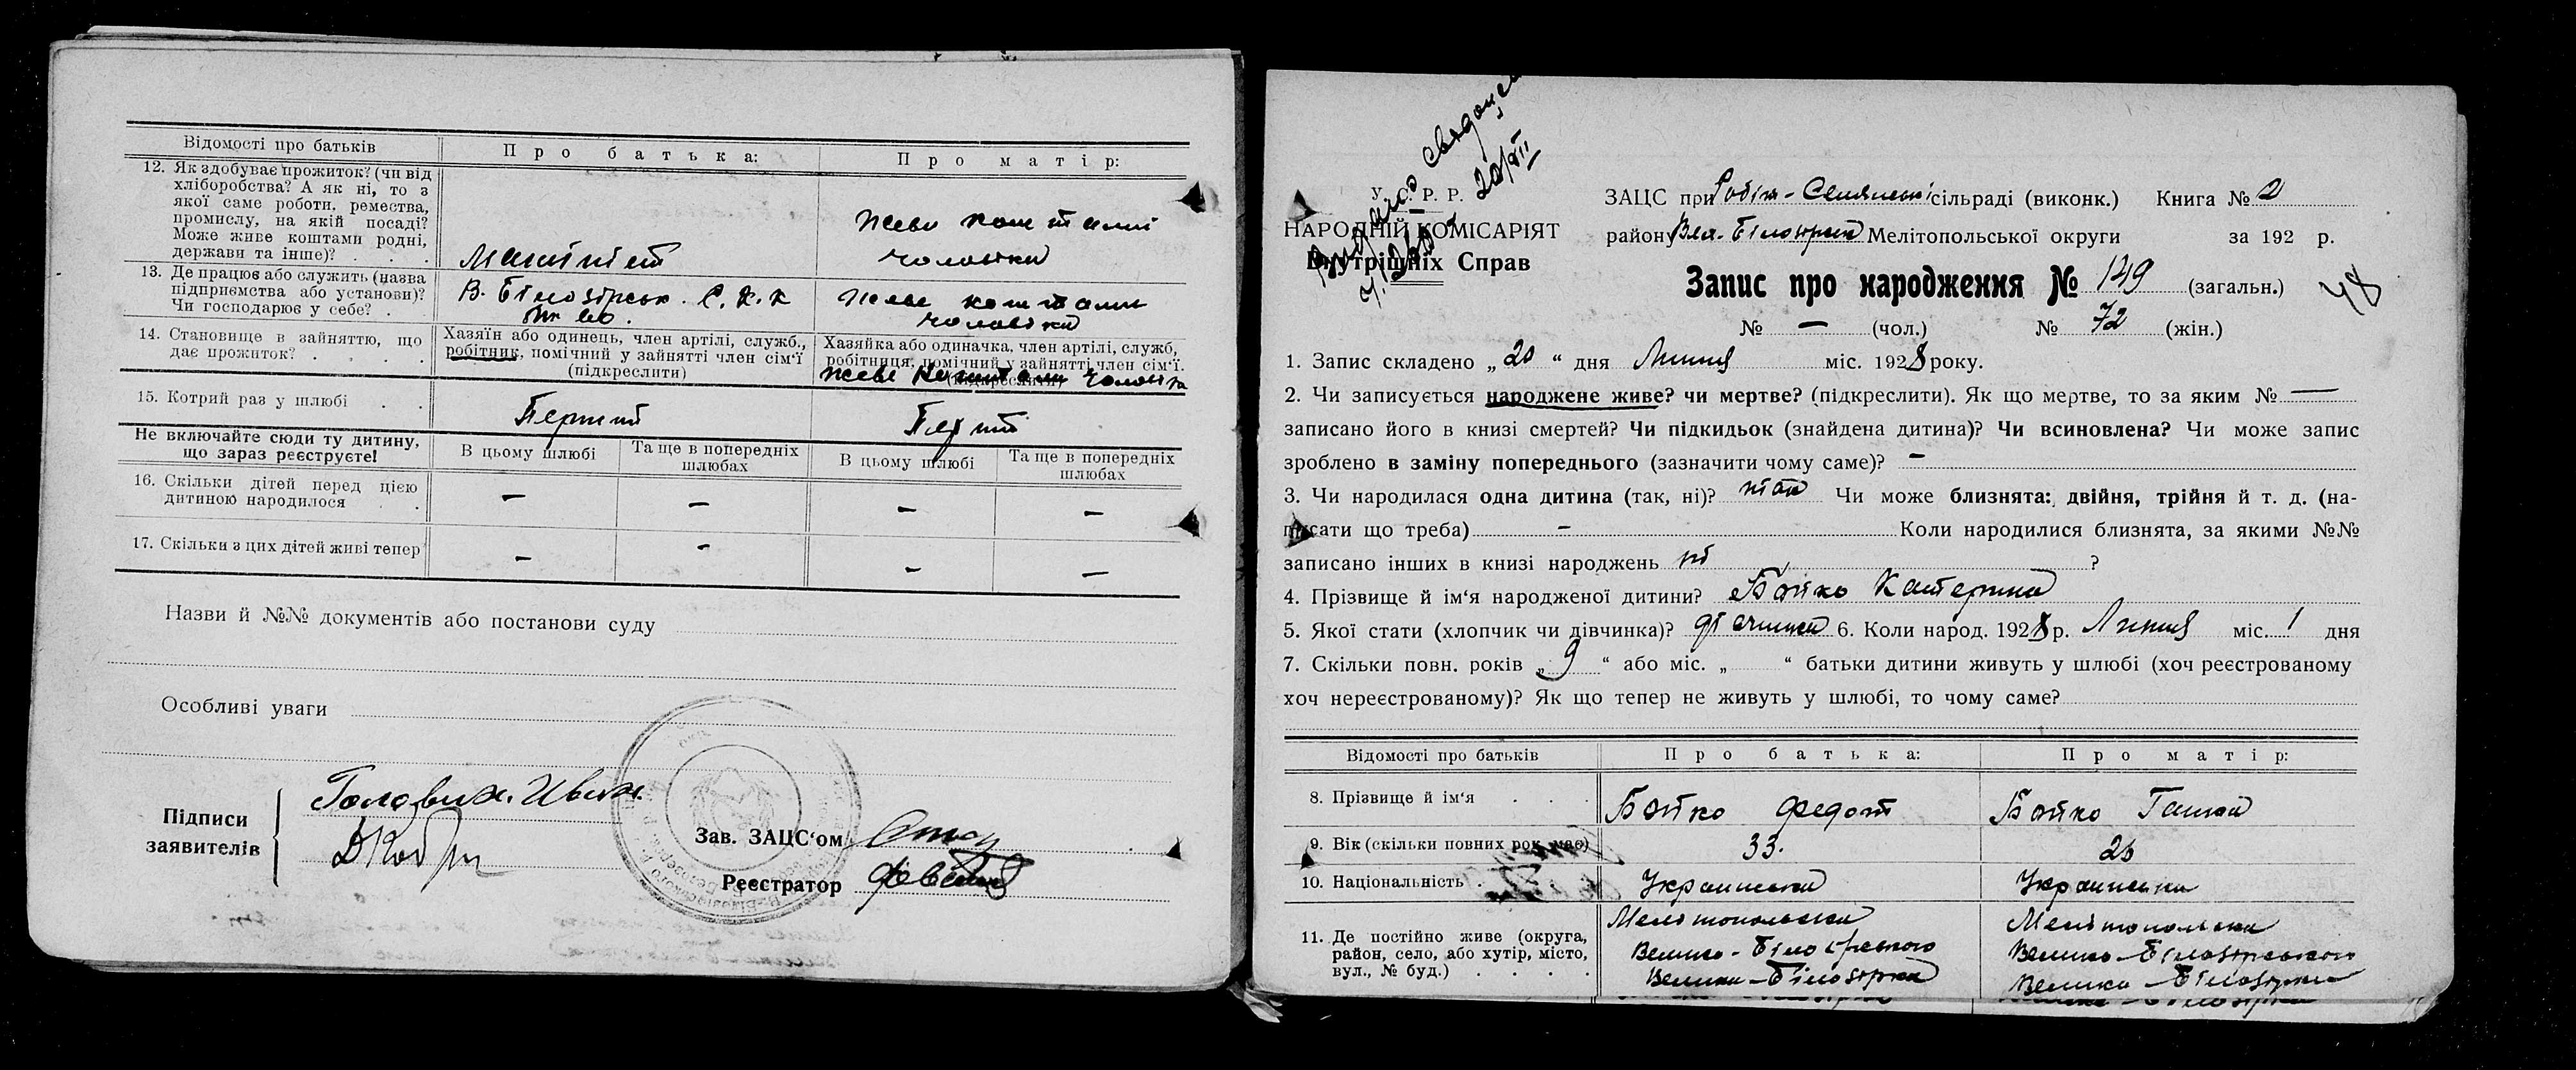 Відомості про батьків
Про батька:
Про матір:
12. Як здобуває прожиток? (чи від
хліборобства? А як ні, то з
якої саме роботи, ремества,
промислу, на якій посаді?
Може живе коштами родні,
держави та інше)? . . .
Машініст
живе коштамі
чоловіка
13. Де працює або служить (назва
підприємства або установи)?
Чи господарює у себе? . .
В. Білозірськ. С. К. К
живе коштами
чоловіка
14. Становище в зайняттю, що
дає прожиток? . . . .
Хазяїн або одинець, член артілі, служб.,
робітник, помічний у зайнятті член сім'ї
(підкреслити)
Хазяйка або одиначка, член артілі, служб,
робітниця, помічний у зайнятті член сім'ї.
(підкреслити)
живе коштами чоловіка
15. Котрий раз у шлюбі . .
Перший
Перший
Не включайте сюди ту дитину,
що зараз реєструєте!
В цьому шлюбі
Та ще в попередніх
шлюбах
В цьому шлюбі
Та ще в попередніх
шлюбах
16. Скільки дітей перед цією
дитиною народилося . .
— — — —
17. Скільки з цих дітей живі тепер
— — — —
Назви й №№ документів або постанови суду
Особливі уваги
Підписи
заявителів
Головин. Иван.
Зав. ЗАЦС'ом
Реєстратор
Видано
20/VII
У. С. Р. Р.
НАРОДНІЙ КОМІСАРІЯТ
Внутрішніх Справ
ЗАЦС при Робіт-Селянські сільраді (виконк.) Книга № 2
району Вел.-Білозірка Мелітопольської округи за 192 р.
Запис про народження № 149 (загальн.)
48
№ — (чол.) № 72 (жін.)
1. Запис складено „20“ дня Липня міс. 1928 року.
2. Чи записується народжене живе? чи мертве? (підкреслити). Як що мертве, то за яким № —
записано його в книзі смертей? Чи підкидьок (знайдена дитина)? Чи всиновлена? Чи може запис
зроблено в заміну попереднього (зазначити чому саме)? —
3. Чи народилася одна дитина (так, ні)? Чи може близнята: двійня, трійня й т. д. (на-
писати що треба) — Коли народилися близнята, за якими №№
записано інших в книзі народжень ні ?
4. Прізвище й ім'я народженої дитини? Бойко Катерина
5. Якої стати (хлопчик чи дівчинка)? дівчинка 6. Коли народ. 1928 р. Липня міс. 1 дня
7. Скільки повн. років „9“ або міс. „ “ батьки дитини живуть у шлюбі (хоч реєстрованому
хоч нереєстрованому)? Як що тепер не живуть у шлюбі, то чому саме?
Відомості про батьків
Про батька:
Про матір:
8. Прізвище й ім'я . . .
Бойко Федот
Бойко Ганна
9. Вік (скільки повних рок. має)
33.
26
10. Національність .
Украинська
Украинька
11. Де постійно живе (округа,
район, село, або хутір, місто,
вул., № буд.) . . . .
Мелітопольска
Велико-Білозірського
Велика-Білозірка
Мелітопольска
Велико-Білозірського
Велика-Білозірка